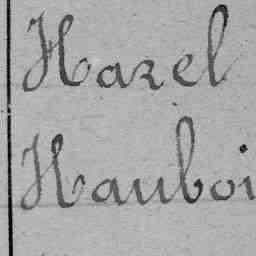 Hazel
Hauboi